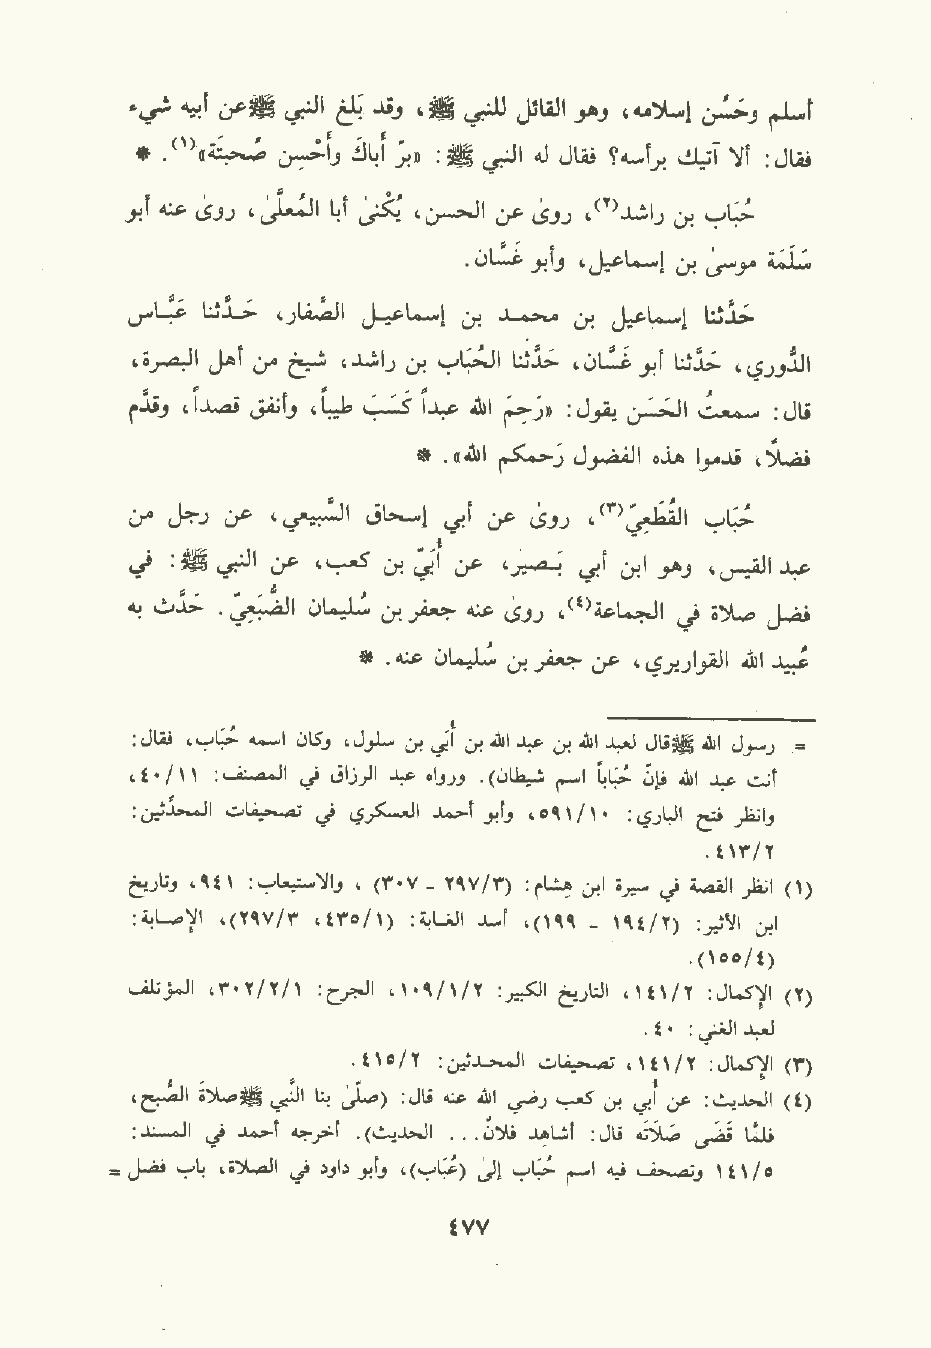 أسلم وحَسُن إسلامه، وهو القائل للنبي ﷺ، وقد بَلَغ النبي ﷺ عن أبيه شيء
فقال: ألا آتيك برأسه؟ فقال له النبي ﷺ: «بَرَّ أَباكَ وأَحْسِن صُحبَتَه»(١). *
حُبَاب بن راشد(٢)، روىٰ عن الحسن، يُكْنىٰ أبا المُعلَّىٰ، روىٰ عنه أبو
سَلَمَة موسىٰ بن إسماعيل، وأبو غَسَّان.
حَدَّثنا إسماعيل بن محمد بن إسماعيل الصَّفار، حَدَّثنا عَبَّاس
الدُّوري، حَدَّثنا أبو غَسَّان، حَدَّثنا الحُبَاب بن راشد، شيخ من أهل البصرة،
قال: سمعتُ الحَسَن يقول: «رَحِمَ الله عبداً كَسَبَ طيباً، وأنفق قصداً، وقدَّم
فضلاً، قدموا هذا الفضول رَحمكم الله». *
حُبَاب القُطَعِيّ(٣)، روىٰ عن أبي إسحاق السَّبيعي، عن رجل من
عبد القيس، وهو ابن أبي بَصير، عن أُبَيّ بن كعب، عن النبي ﷺ: في
فضل صلاة في الجماعة(٤)، روىٰ عنه جعفر بن سُليمان الضُّبَعِيّ. حَدَّث به
عُبيد الله القواريري، عن جعفر بن سُليمان عنه. *
= رسول الله ﷺ قال لعبد الله بن عبد الله بن أُبَي بن سلول، وكان اسمه حُبَاب، فقال:
أنت عبد الله فإن حُبَاباً اسم شيطان). ورواه عبد الرزاق في المصنف: ٤٠/١١،
وانظر فتح الباري: ٥٩١/١٠، وأبو أحمد العسكري في تصحيفات المحدّثين:
٤١٣/٢.
(١) انظر القصة في سيرة ابن هشام: (٢٩٧/٣ - ٣٠٧) ، والاستيعاب: ٩٤١، وتاريخ
ابن الأثير: (١٩٤/٢ - ١٩٩)، أسد الغابة: (٤٣٥/١، ٢٩٧/٣)، الإصابة:
(١٥٥/٤).
(٢) الإكمال: ١٤١/٢، التاريخ الكبير: ١٠٩/١/٢، الجرح: ٣٠٢/٢/١، المؤتلف
لعبد الغني: ٤٠.
(٣) الإكمال: ١٤١/٢، تصحيفات المحدثين: ٤١٥/٢.
(٤) الحديث: عن أُبي بن كعب رضي الله عنه قال: (صلّىٰ بنا النَّبي ﷺ صلاةَ الصُّبح،
فلمَّا قَضَى صَلاتَه قال: أشاهد فلانٌ... الحديث). أخرجه أحمد في المسند:
١٤١/٥ وتصحف فيه اسم حُبَاب إلىٰ (عُبَاب)، وأبو داود في الصلاة، باب فضل =
٤٧٧